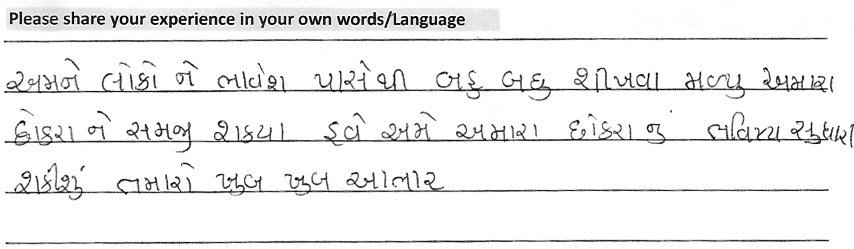 Please share your experience in your own words/Language
અમને લોકો ને ભાવેશ પાસેથી બહુ બધુ શીખવા મળ્યુ અમારા
છોકરા ને સમજી શકયા હવે અમે અમારા છોકરા નું ભવિષ્ય સુધારી
શકીશું તમારો ખુબ ખુબ આભાર